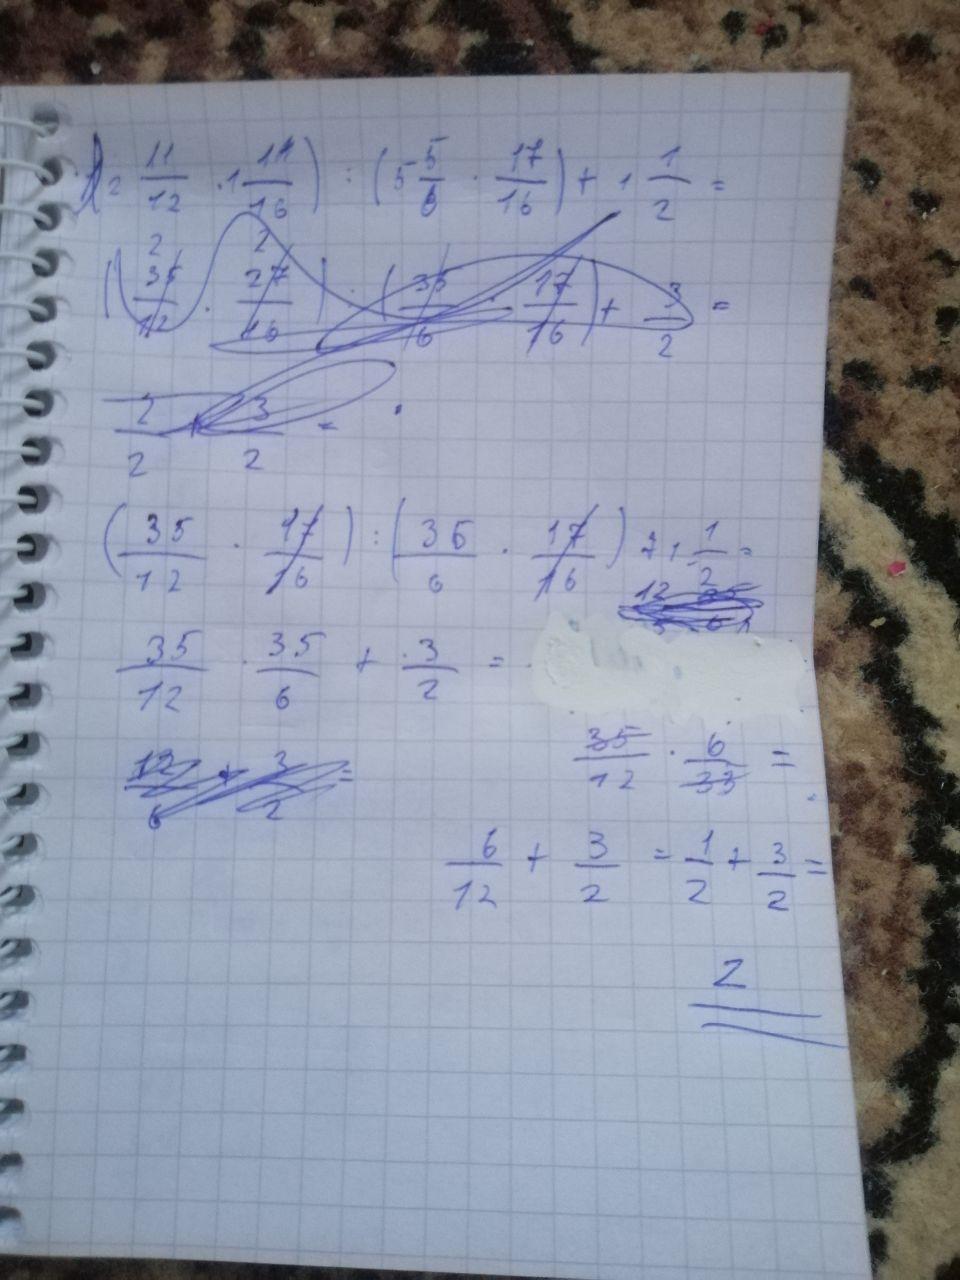 (2 11/12 · 1 11/16) : (5 5/6 · 17/16) + 1 1/2 =
(35/12 · 27/16) : (35/6 · 17/16) + 3/2 =
2/2 + 3/2 =
(35/12 · 17/16) : (35/6 · 17/16) + 1 1/2 =
35/12 · 35/6 + 3/2 =
35/12 · 6/33 =
12/6 + 3/2 =
6/12 + 3/2 = 1/2 + 3/2 =
2